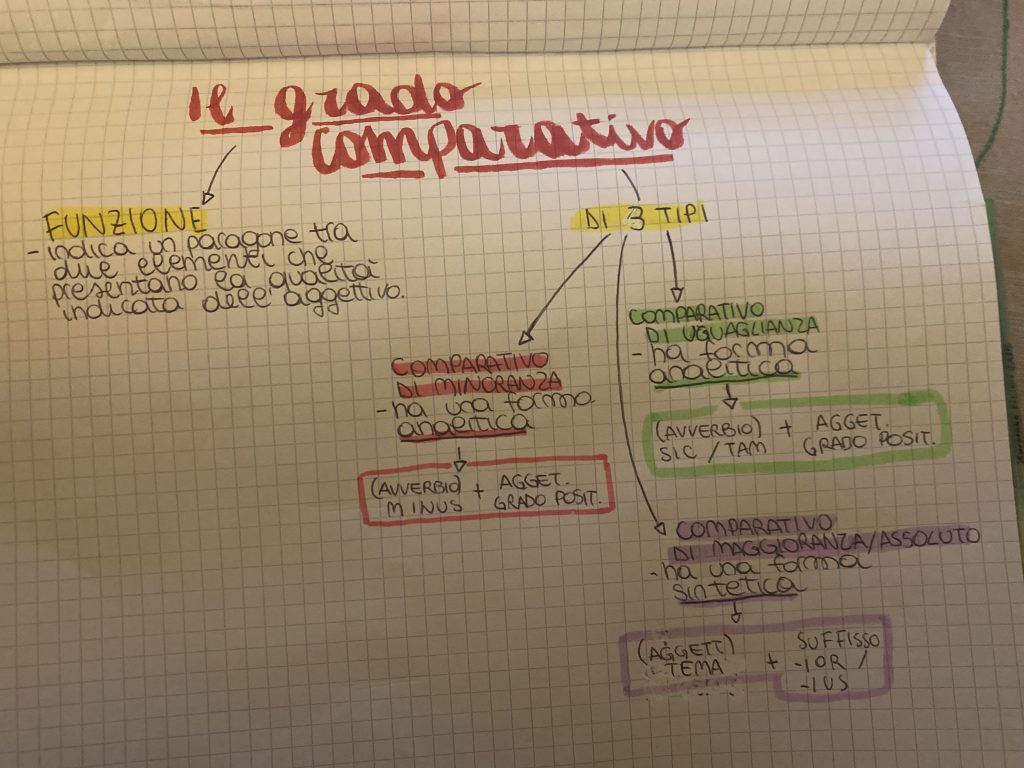 Il grado
comparativo
FUNZIONE
- indica un paragone tra
due elementi che
presentano la qualità
indicata dell'aggettivo.
DI 3 TIPI
COMPARATIVO
DI MINORANZA
- ha una forma
analitica
(AVVERBIO) + AGGET.
MINUS GRADO POSIT.
COMPARATIVO
DI UGUAGLIANZA
- ha forma
analitica
(AVVERBIO) + AGGET.
SIC / TAM GRADO POSIT.
COMPARATIVO
DI MAGGIORANZA/ASSOLUTO
- ha una forma
sintetica
(AGGETT) + SUFFISSO
TEMA -IOR /
-IUS